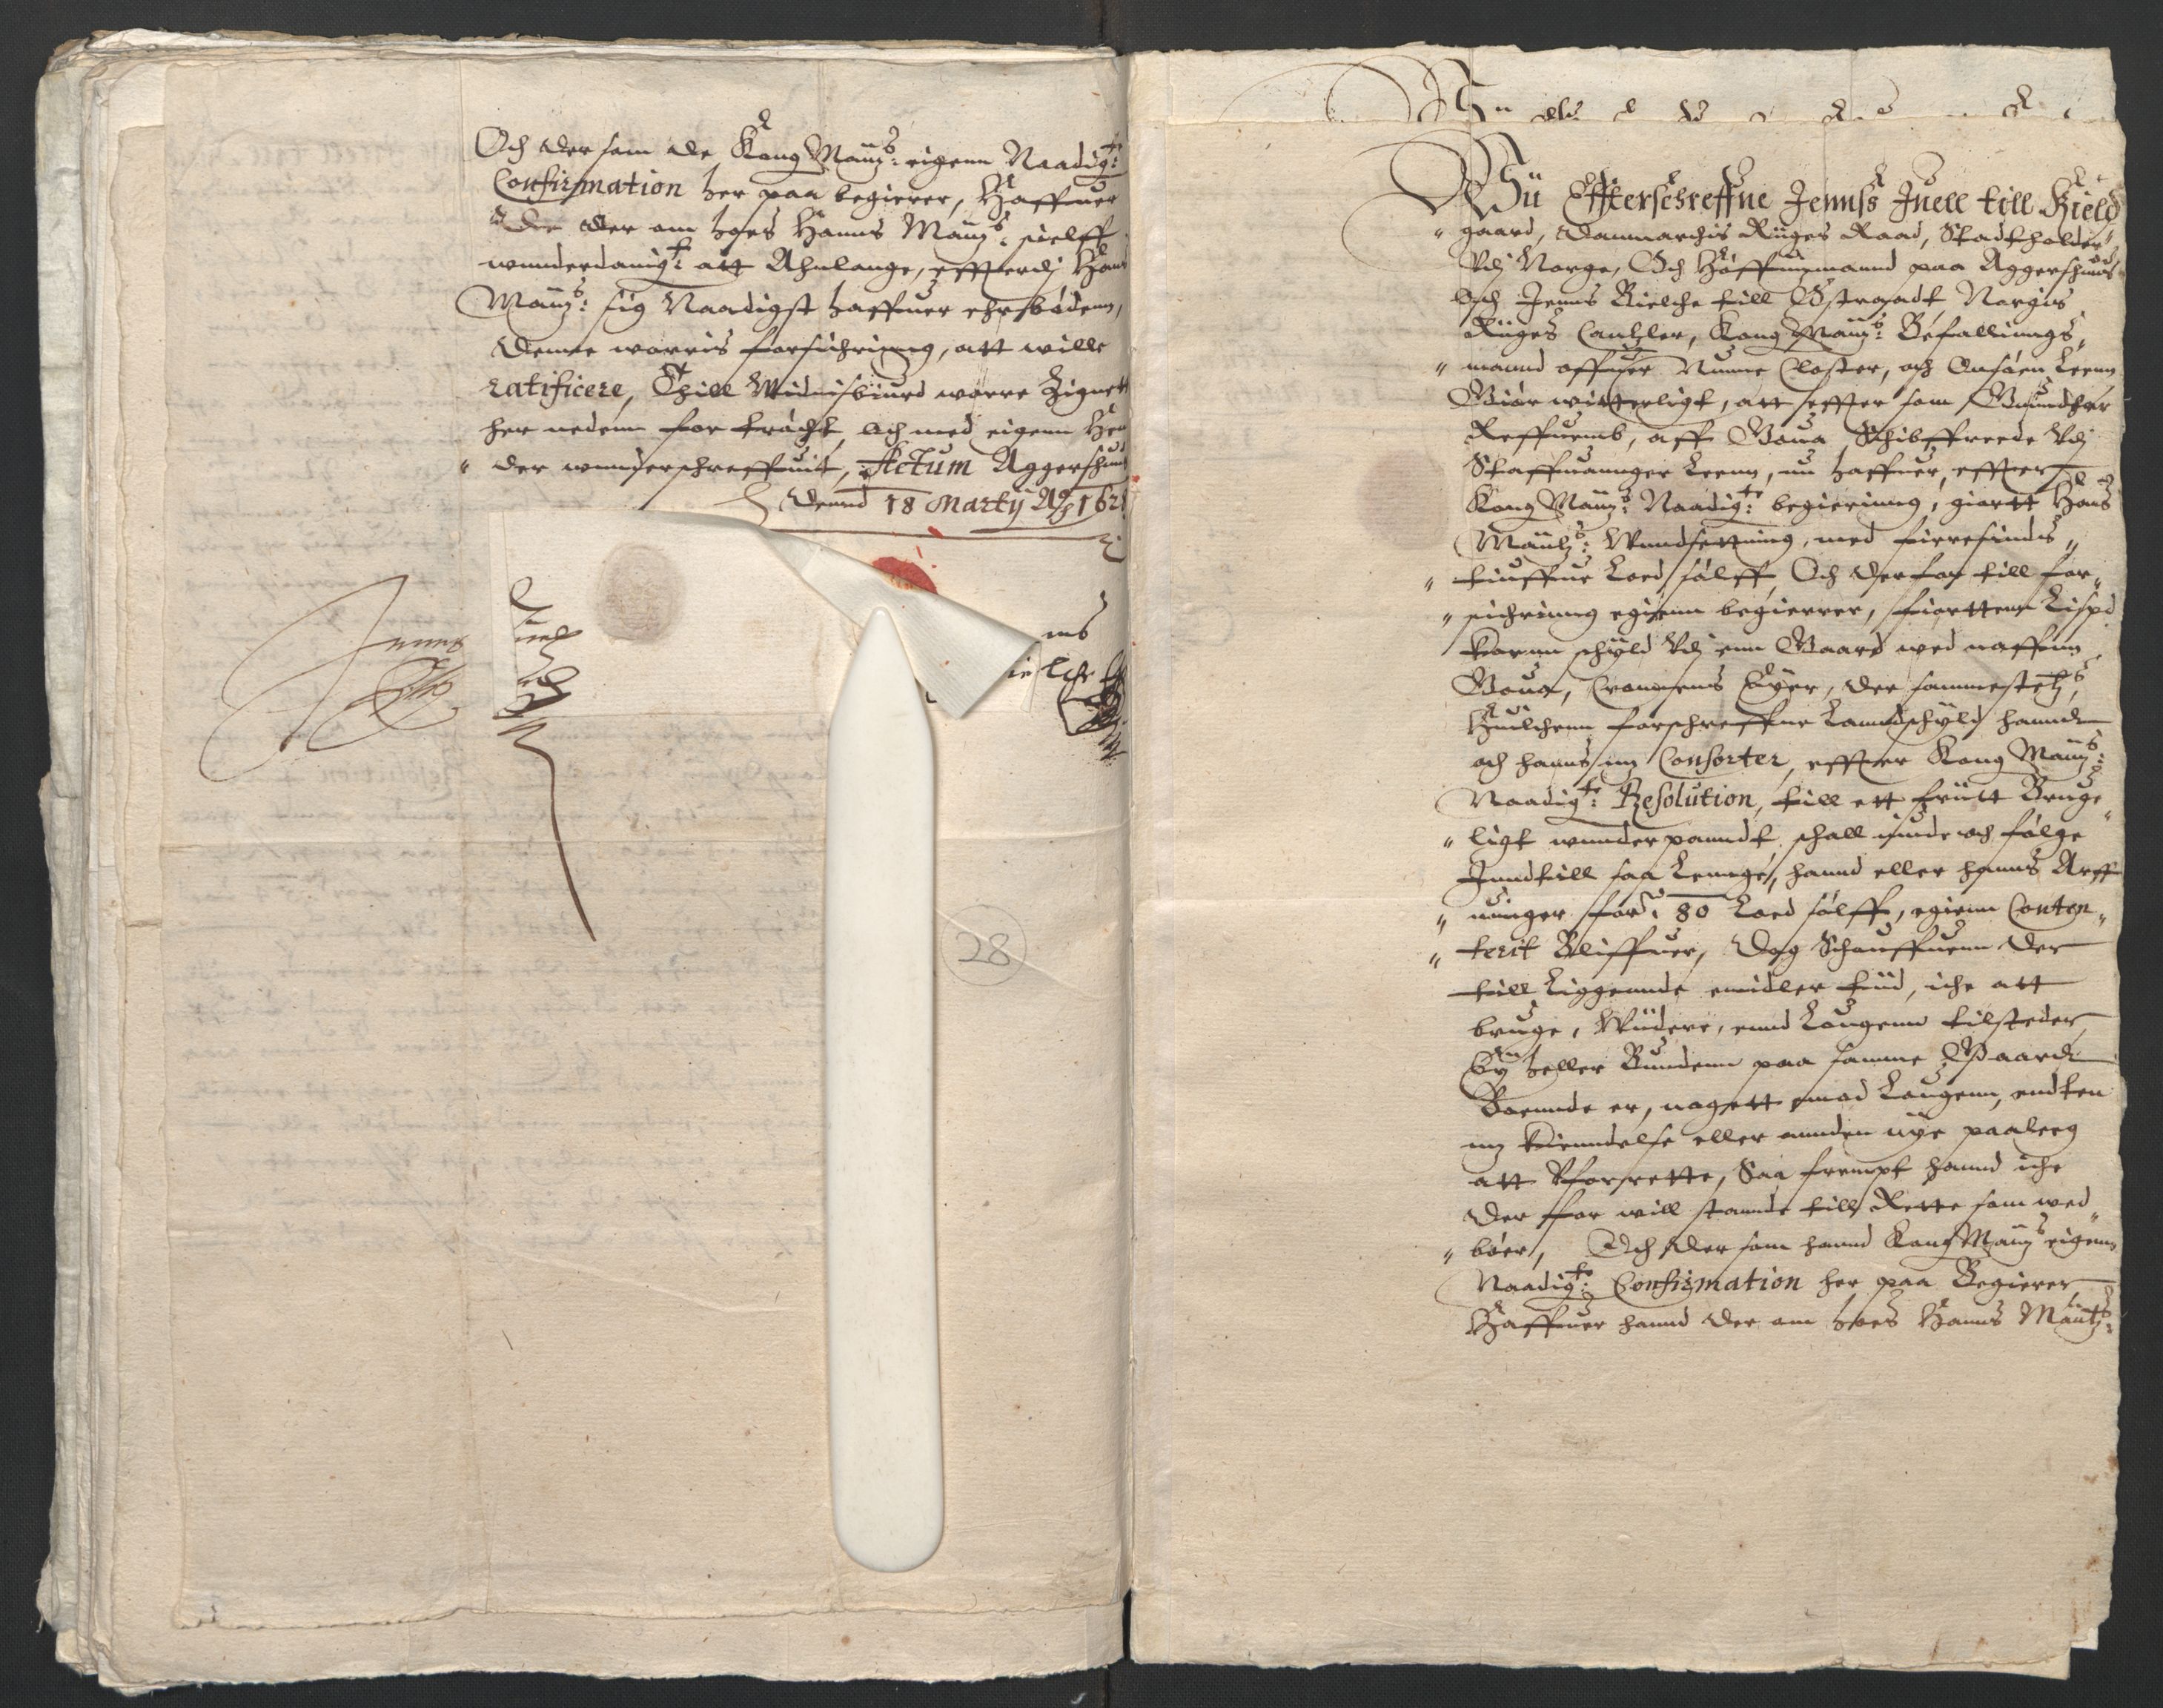 Och der som de Kong Maytz: eigenn Naadigt:
Confirmation her paa begierer, Haffuer
de der om hoes Hanns Maytz: sielff
wunderdanigt: att Ahnlange, effterdj Hans
Maytz: sig Naadigst haffuer ehrbödenn,
denne worris forsichring, att wille
ratificere, Thill Widnisbiurd worre Zignett
her nedenn for tröcht, och med eigenn Hen
der wunderschreffuit, Actum Aggershuus
Dennd 18 Martij Ao 162
Jenns
Juel
ns
ielche
28
Wii Effterschreffne Jennss Juell till Kield
gaard, Dannmarchis Riiges Raad, Stadtholder
Vdj Norge, Och Höffuizmannd paa Aggershuus
Och Jenns Bielche till Østraadt Norgis
Riiges Cantzler, Kong Maytz: Befallinngs
mannd offuer Nunne Closter, och Onsöen Leenn
Giör witterligt, att effter som Gunder
Reffuemb, aff Schibffreede Vdj
Staffuannger Leenn, nu haffuer, effter
Kong Maytz: Naadigt: begieringg, giortt Hans
Maytz: Wundsettning, med firresinds
tiuffue Loed sölff, Och der for till for
sichring egienn begierrer, fiortten Lispd
Kornn schyld Vdj enn Gaard ved naffnn
Cronnens Eyer, der sammestetz,
Huilchenn forschreffne Lanndschyld hannd
och hanns my Consorter, effter Kong Maytz:
Naadigt: Resolution, till ett friitt Bruge
ligt wunderpanndt, schall niude och fölge
Inndtill saa Lennge, hannd eller hanns Arff
uinger for: 80 Loed sölff, egienn Conten
terit Bliffuer, Dog Schouffuenn der
till Liggennde emidler tiid, iche att
bruge, Wiidere, ennd Lougenn tilsteder
Ey heller Bundenn paa samme Gaard
Boennde er, nogett emod Lougenn, endten
my kiendelse eller annden nye paaleg
att Vforrette, Saa frempt hannd iche
der for will stannde till Rette som wed
böer, Och der som hannd Kong Maytz eigenn
Naadigt: Confirmation her paa Begierer
Haffuer hannd der om hoes Hanns Maytz: